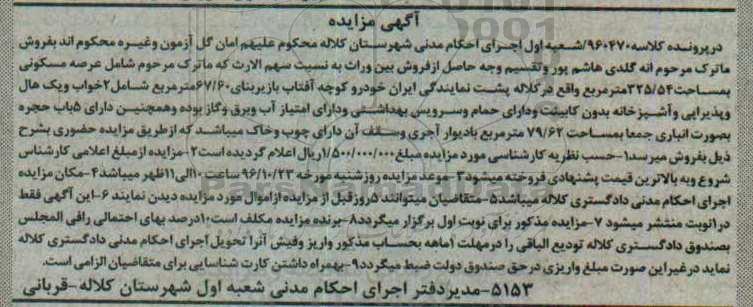 آگهی مزایده
درپرونده کلاسه ۹۶۰۴۷۰/شعبه اول اجرای احکام مدنی شهرستان کلاله محکوم علیهم امان گل آزمون وغیره محکوم اند بفروش
ماترک مرحوم انه گلدی هاشم پور وتقسیم وجه حاصل ازفروش بین وراث به نسبت سهم الارث که ماترک مرحوم شامل عرصه مسکونی
بمساحت ۳۲۵/۵۴مترمربع واقع در کلاله پشت نمایندگی ایران خودرو کوچه آفتاب بازیربنای ۶۷/۶۰مترمربع شامل ۲خواب ویک هال
وپذیرایی و آشپزخانه بدون کابینت ودارای حمام وسرویس بهداشتی ودارای امتیاز آب وبرق وگاز بوده وهمچنین دارای ۵باب حجره
بصورت انباری جمعا بمساحت ۷۹/۶۲ مترمربع بادیوار آجری وسقف آن دارای چوب وخاک میباشد که ازطریق مزایده حضوری بشرح
ذیل بفروش میرسد۱-حسب نظریه کارشناسی مورد مزایده مبلغ ۱/۵۰۰/۰۰۰/۰۰۰ریال اعلام گردیده است۲-مزایده ازمبلغ اعلامی کارشناس
شروع وبه بالاترین قیمت پشنهادی فروخته میشود۳-موعد مزایده روزشنبه مورخه ۹۶/۱۰/۲۳ ساعت ۱۰الی۱۱ظهر میباشد۴-مکان مزایده
اجرای احکام مدنی دادگستری کلاله میباشد۵-متقاضیان میتوانند ۵روزقبل از مزایده ازاموال مورد مزایده دیدن نمایند ۶-این آگهی فقط
در۱نوبت منتشر میشود ۷-مزایده مذکور برای نوبت اول برگزار میگردد۸-برنده مزایده مکلف است۱۰درصد بهای احتمالی رافی المجلس
بصندوق دادگستری کلاله تودیع الباقی را درمهلت ۱ماهه بحساب مذکور واریز وفیش آنرا تحویل اجرای احکام مدنی دادگستری کلاله
نماید درغیراین صورت مبلغ واریزی درحق صندوق دولت ضبط میگردد۹-بهمراه داشتن کارت شناسایی برای متقاضیان الزامی است.
۵۱۵۳-مدیردفتر اجرای احکام مدنی شعبه اول شهرستان کلاله-قربانی